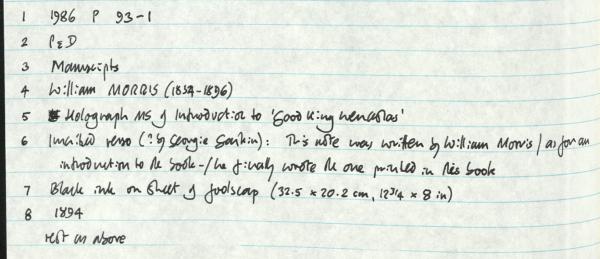 1 1986 P 93-1
2 P&D
3 Manuscripts
4 William MORRIS (1834-1896)
5 Holograph MS of Introduction to 'Good King Wenceslas'
6 Inscribed verso (? by Georgie Gaskin): This note was written by William Morris / as for an
introduction to the book - / he finally wrote the one printed in this book
7 Black ink on Sheet of foolscap (32.5 x 20.2 cm, 12 3/4 x 8 in)
8 1894
rest as above